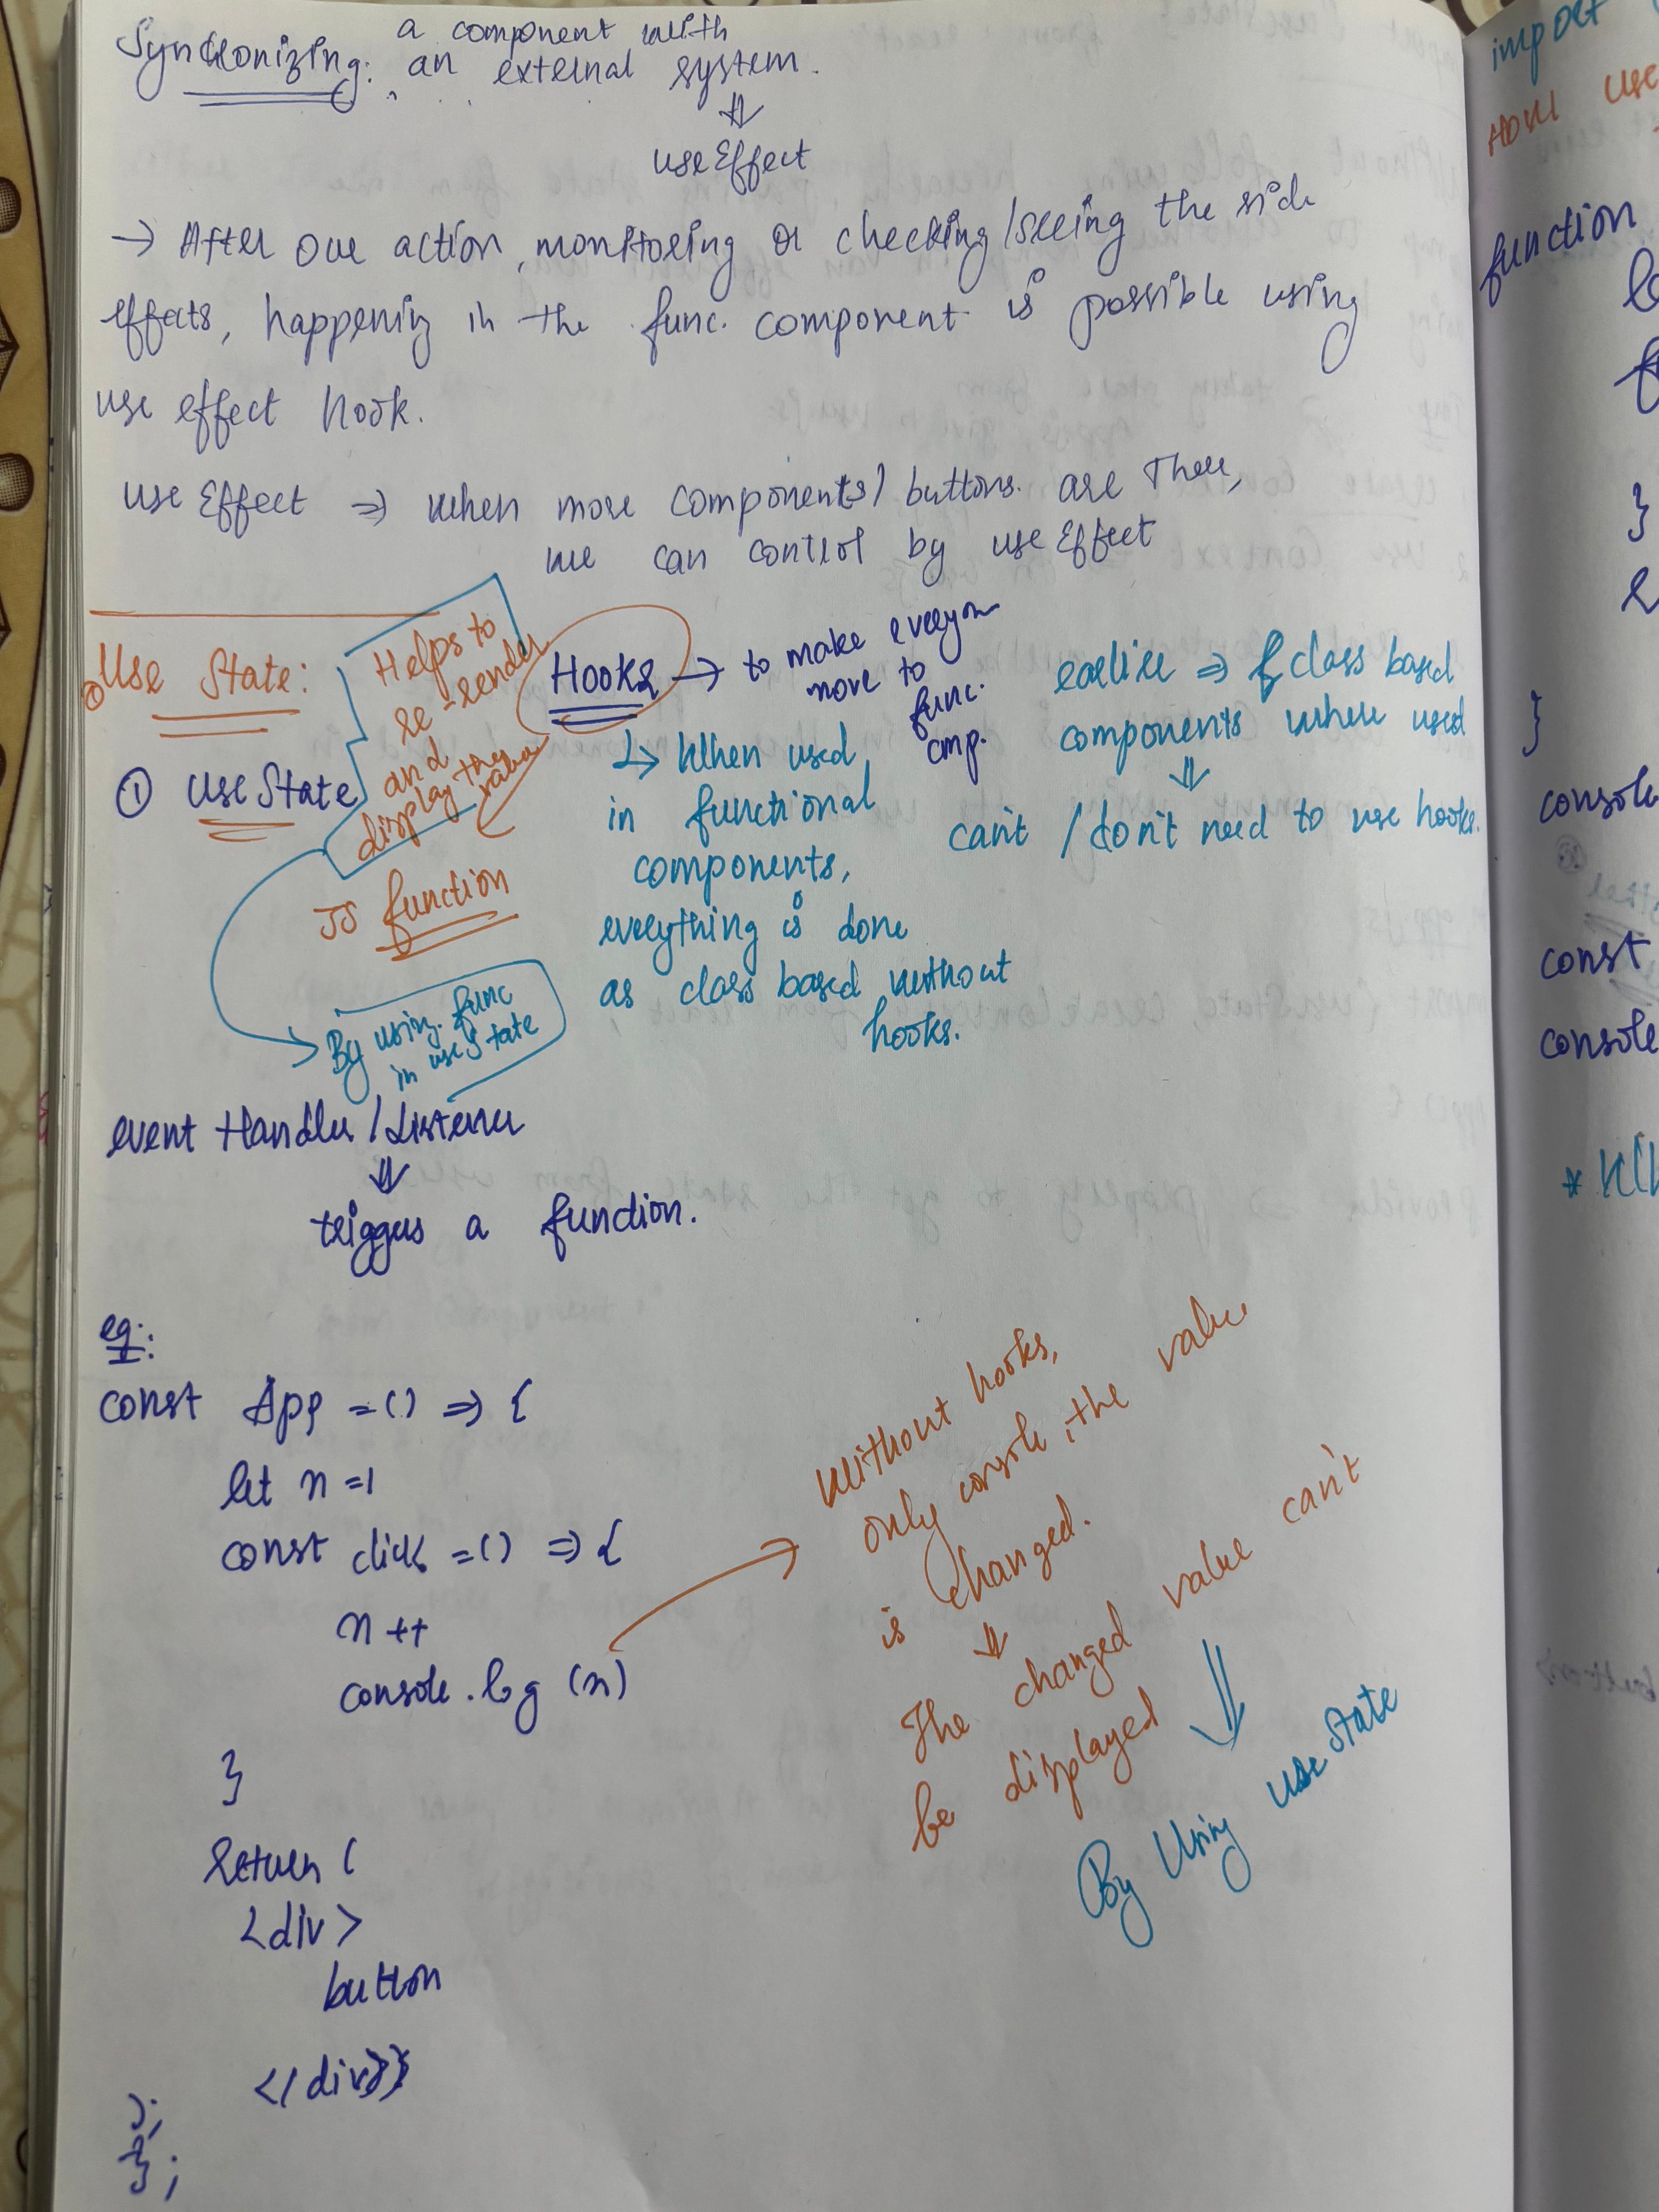 Synchronizing: a component with
an external system.
⇓
useEffect
→ After our action, monitoring or checking/seeing the side
effects, happening in the func. component is possible using
use effect hook.
useEffect ⇒ when more components/buttons are there,
we can control by useEffect
Use State:
① useState
Helps to
re-render
and
display the
value
JS function
By using func
in useState
Hooks → to make everyone
move to
func.
cmp.
↳ When used
in functional
components,
everything is done
as class based without
hooks.
earlier ⇒ class based
components where used
⇓
can't / don't need to use hooks.
event Handler / Listener
⇓
triggers a function.
eg:
const App = () => {
let n = 1
const click = () => {
n++
console.log (n)
}
return (
<div>
button
</div>
);
};
Without hooks,
only console, the value
is changed.
⇓
The changed value can't
be displayed
⇓
By Using useState
import
How use
function
}
}
console
const
console